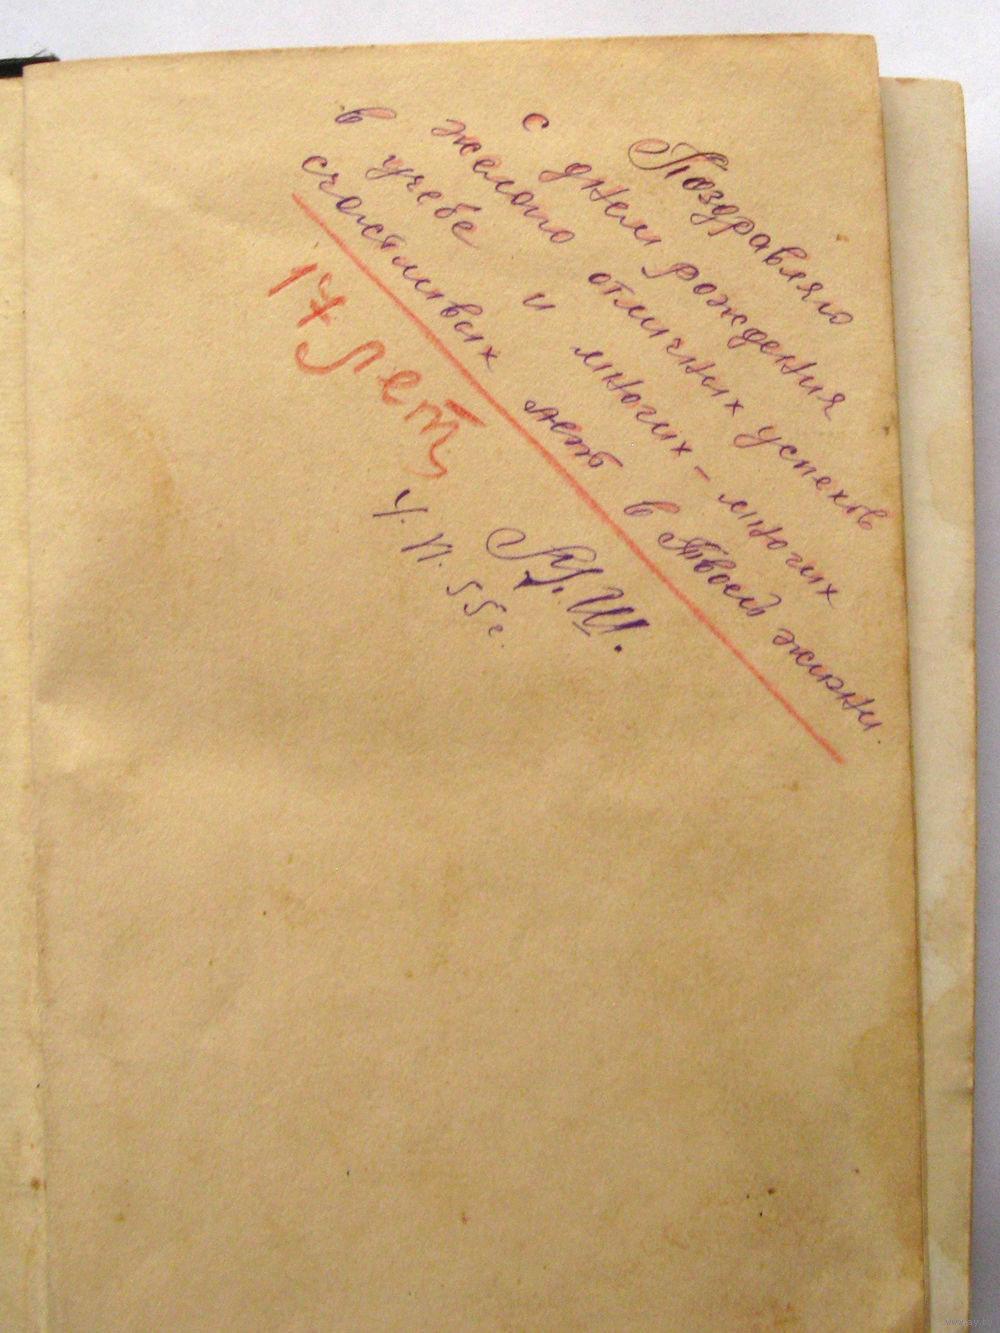 Поздравляю
с днем рождения
желаю отличных успехов
в учебе и многих – многих
счастливых лет в Твоей жизни.
17 лет
55 г.
www.ay.by